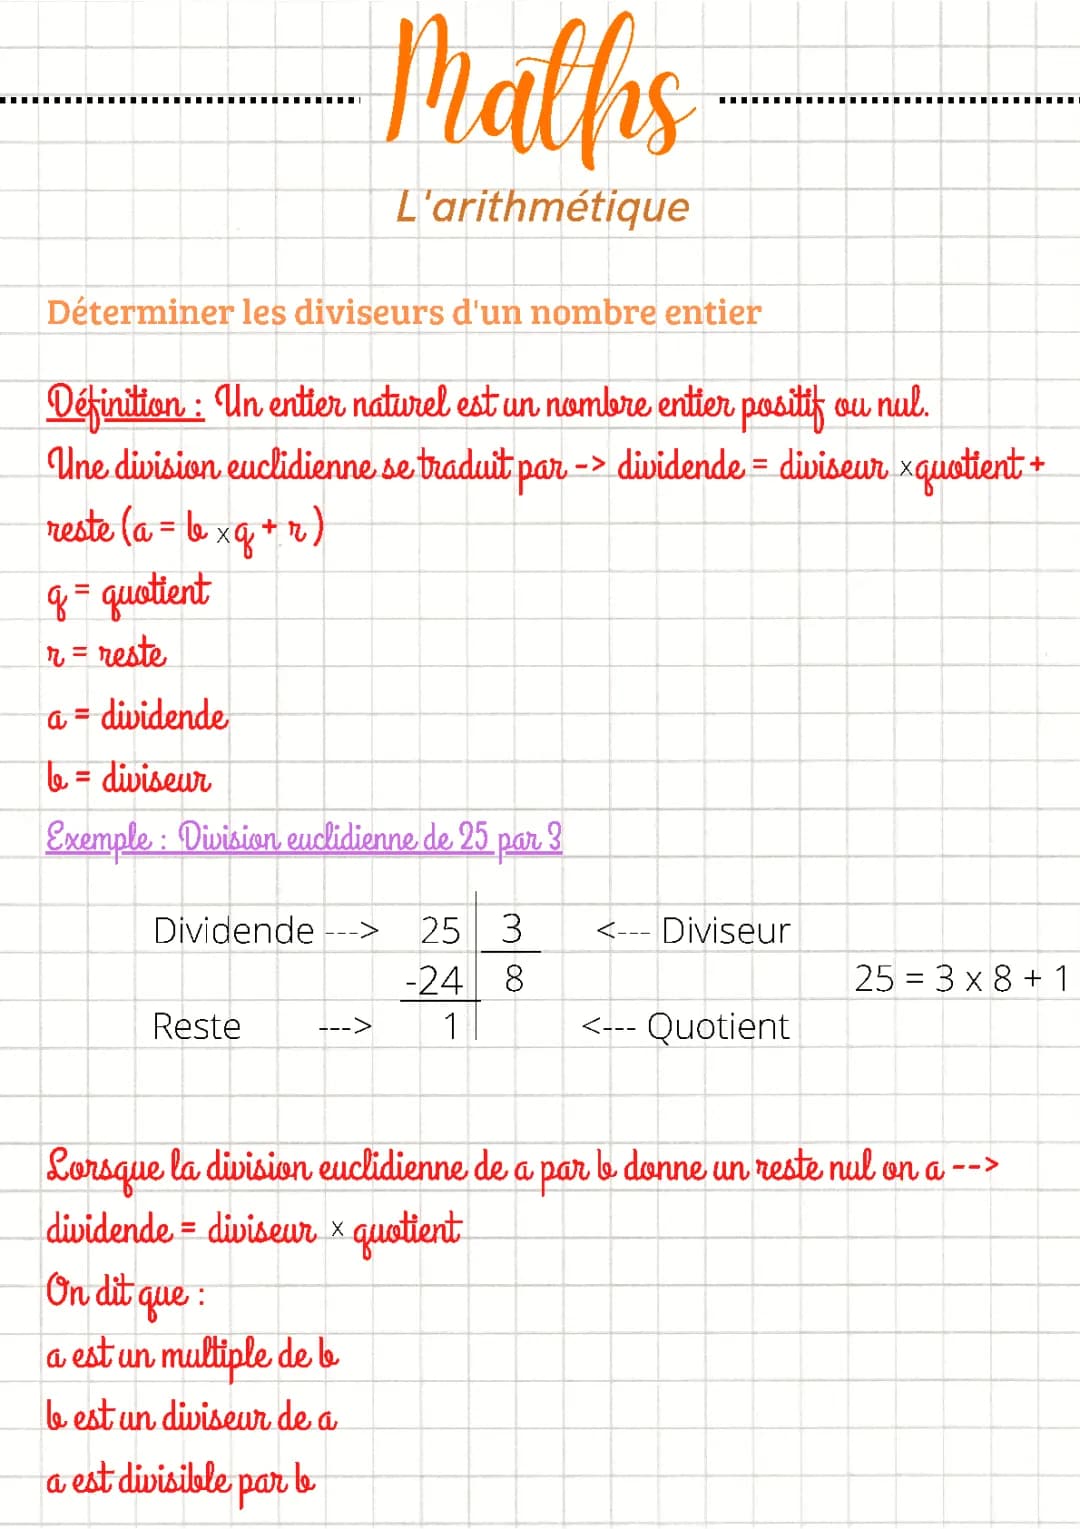 Maths
L'arithmétique
Déterminer les diviseurs d'un nombre entier
Définition : Un entier naturel est un nombre entier positif ou nul.
Une division euclidienne se traduit par -> dividende = diviseur x quotient +
reste (a = b x q + r)
q = quotient
r = reste
a = dividende
b = diviseur
Exemple : Division euclidienne de 25 par 3
Dividende ---> 25 3 <--- Diviseur
-24 8 25 = 3 x 8 + 1
Reste ---> 1 <--- Quotient
Lorsque la division euclidienne de a par b donne un reste nul on a -->
dividende = diviseur x quotient
On dit que :
a est un multiple de b
b est un diviseur de a
a est divisible par b